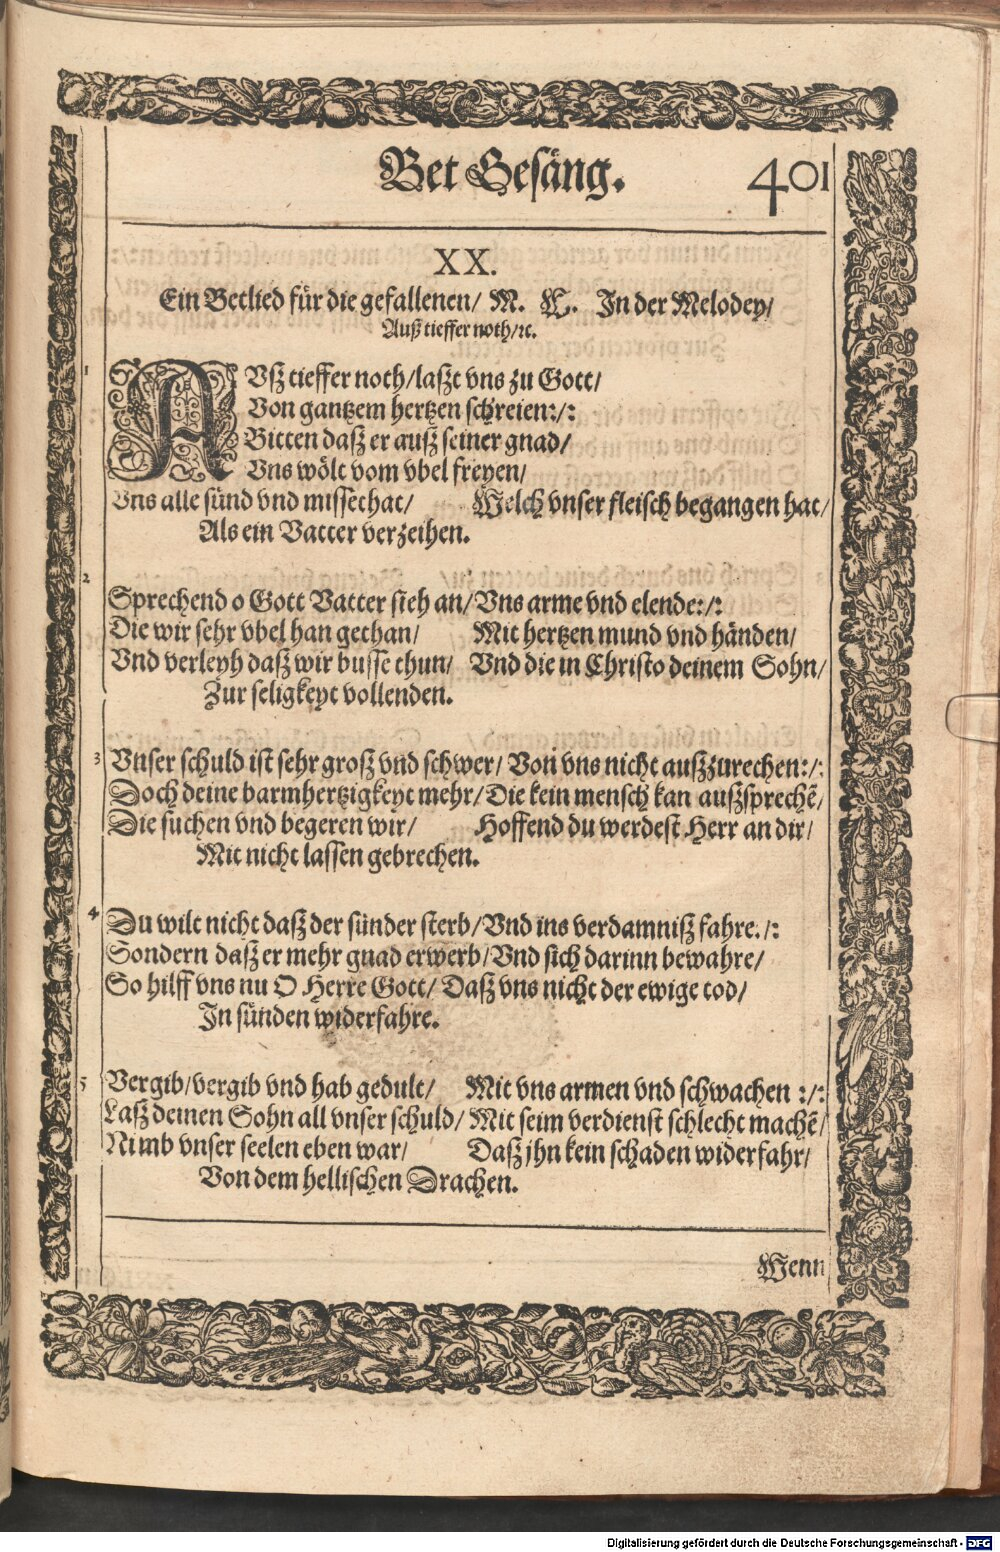 Bet Gesäng. 401
XX.
Ein Betlied für die gefallenen/ M. In der Melodey/
Auß tieffer noth/ꝛc.
1 AVsz tieffer noth/laszt vns zu Gott/
Von gantzem hertzen schreien:/:
Bitten dasz er ausz seiner gnad/
Vns wölt vom vbel freyen/
Vns alle sünd vnd missethat/ Welch vnser fleisch begangen hat/
Als ein Vatter verzeihen.
2
Sprechend o Gott Vatter sieh an/ Vns arme vnd elende:/:
Die wir sehr vbel han gethan/ Mit hertzen mund vnd händen/
Vnd verleyh dasz wir busse thun/ Vnd die in Christo deinem Sohn/
Zur seligkeyt vollenden.
3 Vnser schuld ist sehr grosz vnd schwer/ Von vns nicht auszzurechen:/:
Doch deine barmhertzigkeyt mehr/ Die kein mensch kan auszsprechẽ/
Die suchen vnd begeren wir/ Hoffend du werdest Herr an dir/
Mit nicht lassen gebrechen.
4 Du wilt nicht dasz der sünder sterb/ Vnd ins verdamnisz fahre./:
Sondern dasz er mehr gnad erwerb/ Vnd sich darinn bewahre/
So hilff vns nu O Herre Gott/ Dasz vns nicht der ewige tod/
In sünden widerfahre.
5 Vergib/vergib vnd hab gedult/ Mit vns armen vnd schwachen :/:
Lasz deinen Sohn all vnser schuld/ Mit seim verdienst schlecht machẽ/
Nimb vnser seelen eben war/ Dasz jhn kein schaden widerfahr/
Von dem hellischen Drachen.
Wenn
Digitalisierung gefördert durch die Deutsche Forschungsgemeinschaft - DFG